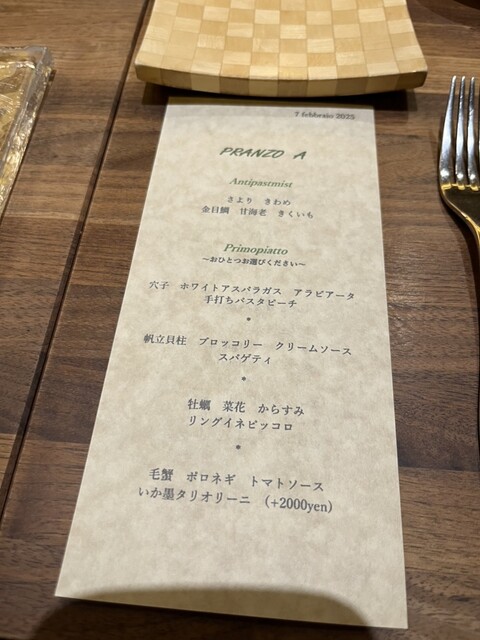 7 febbraio 2025
PRANZO A
Antipastmist
さより　きわめ
金目鯛　甘海老　きくいも
Primopiatto
～おひとつお選びください～
穴子　ホワイトアスパラガス　アラビアータ
手打ちパスタピーチ
•
帆立貝柱　ブロッコリー　クリームソース
スパゲティ
•
牡蠣　菜花　からすみ
リングイネピッコロ
•
毛蟹　ポロネギ　トマトソース
いか墨タリオリーニ　（+2000yen）